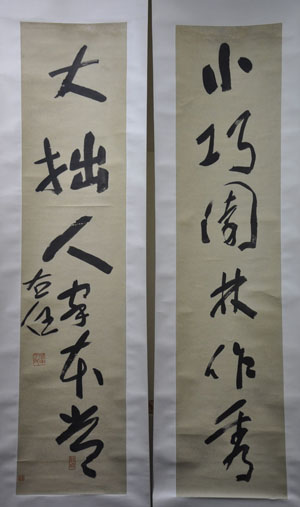 小巧園林作秀
大拙人家本
右任